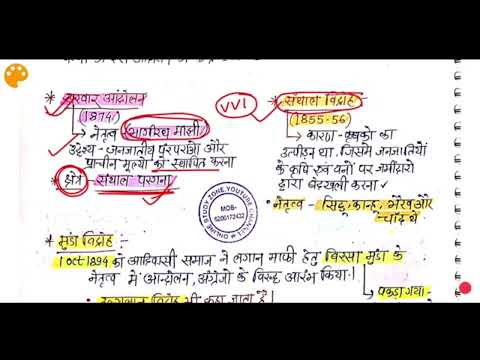 * खरवार आंदोलन
(1874)
→ नेतृत्व भागीरथ माझी
उद्देश्य - जनजातीय परंपराओं और
प्राचीन मूल्यों को स्थापित करना
* क्षेत्र - संथाल परगना
VVI
* संथाल विद्रोह -
(1855-56)
→ कारण - कृषकों का
उत्पीड़न था, जिसमें जनजातियों
के कृषि एवं वनों पर जमींदारों
द्वारा बेदखली करना ✓
• नेतृत्व - सिद्धू, कान्हू, भैरव और
चांद थे
ONLINE STUDY ZONE, YOUTUBE CHANNEL
MOB-
6200172432
* मुंडा विद्रोह -
1 oct 1894 को आदिवासी समाज ने लगान माफी हेतु बिरसा मुंडा के
नेतृत्व में आन्दोलन, अंग्रेजो के विरुद्ध आरंभ किया।
पकड़ा गया।
विद्रोह भी कहा जाता है।